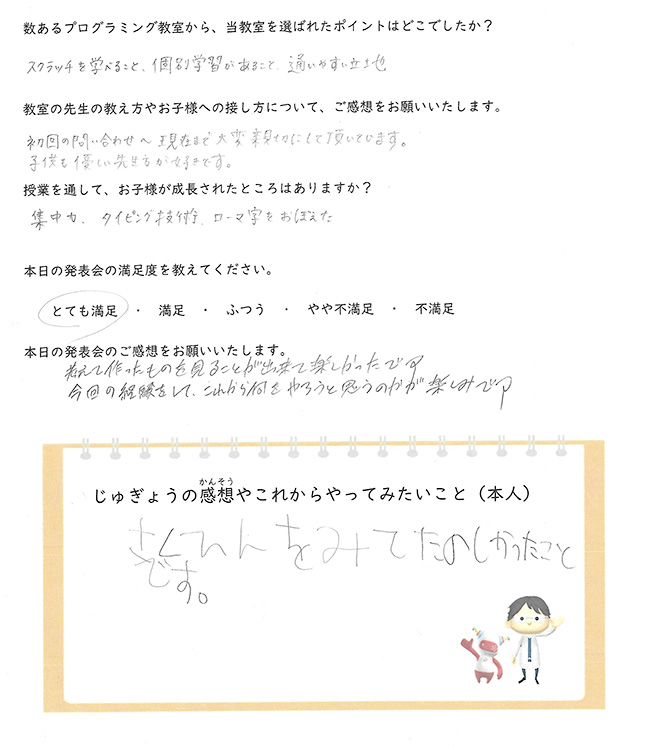 数あるプログラミング教室から、当教室を選ばれたポイントはどこでしたか？
スクラッチを学べること、個別学習があること、通いやすい立地
教室の先生の教え方やお子様への接し方について、ご感想をお願いいたします。
初回の問い合わせ～現在まで大変親切にして頂いています。
子供も優しい先生方が好きです。
授業を通して、お子様が成長されたところはありますか？
集中力、タイピング技術、ローマ字をおぼえた
本日の発表会の満足度を教えてください。
とても満足 ・ 満足 ・ ふつう ・ やや不満足 ・ 不満足
本日の発表会のご感想をお願いいたします。
考えて作ったものを見ることが出来て楽しかったです
今回の経験をして、これから何をやろうと思うのかが楽しみです
かんそう
じゅぎょうの感想やこれからやってみたいこと（本人）
さくひんをみてたのしかったこと
です。